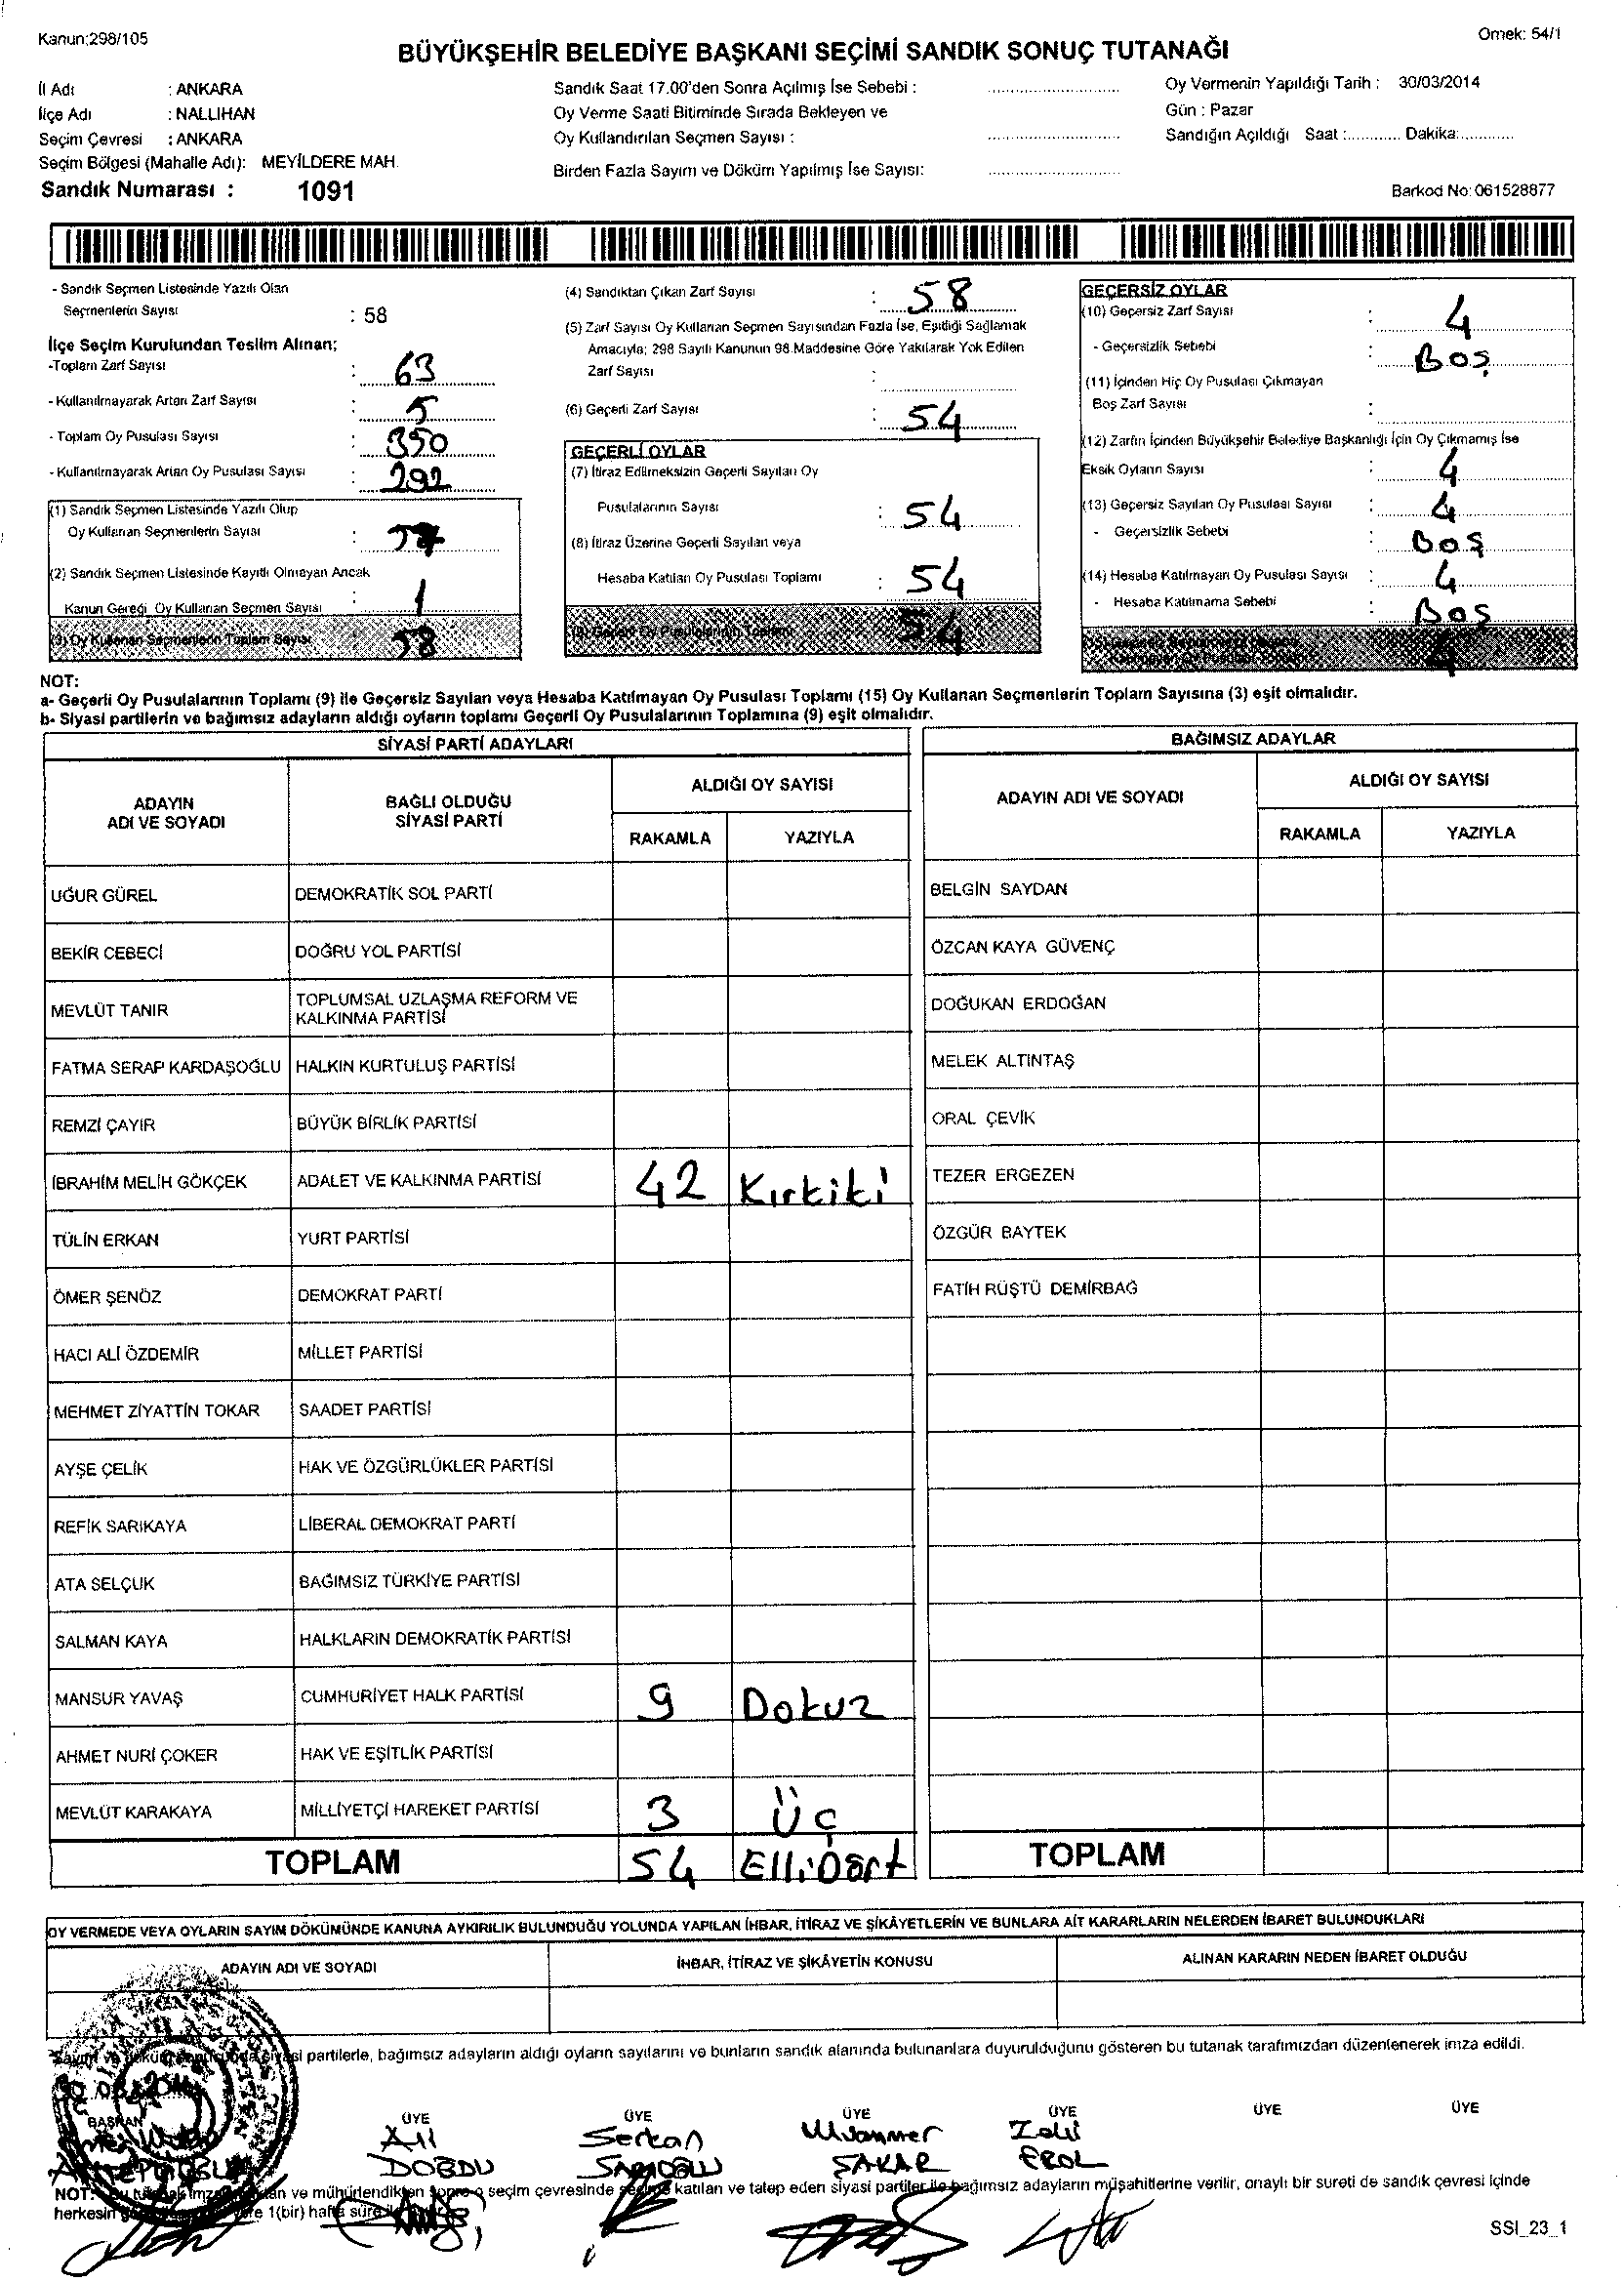 Kanun:298/105
Örnek: 54/1
BÜYÜKŞEHİR BELEDİYE BAŞKANI SEÇİMİ SANDIK SONUÇ TUTANAĞI
İl Adı : ANKARA
İlçe Adı : NALLIHAN
Seçim Çevresi : ANKARA
Seçim Bölgesi (Mahalle Adı): MEYİLDERE MAH.
Sandık Numarası : 1091
Sandık Saat 17.00'den Sonra Açılmış İse Sebebi :
Oy Verme Saati Bitiminde Sırada Bekleyen ve
Oy Kullandırılan Seçmen Sayısı :
Birden Fazla Sayım ve Döküm Yapılmış İse Sayısı:
Oy Vermenin Yapıldığı Tarih : 30/03/2014
Gün : Pazar
Sandığın Açıldığı Saat :............ Dakika:............
Barkod No: 061528877
- Sandık Seçmen Listesinde Yazılı Olan
Seçmenlerin Sayısı : 58
İlçe Seçim Kurulundan Teslim Alınan;
-Toplam Zarf Sayısı : 63
- Kullanılmayarak Artan Zarf Sayısı : 5
- Toplam Oy Pusulası Sayısı : 350
- Kullanılmayarak Artan Oy Pusulası Sayısı : 292
(1) Sandık Seçmen Listesinde Yazılı Olup
Oy Kullanan Seçmenlerin Sayısı : 57
(2) Sandık Seçmen Listesinde Kayıtlı Olmayan Ancak
Kanun Gereği Oy Kullanan Seçmen Sayısı : 1
(3) Oy Kullanan Seçmenlerin Toplam Sayısı 58
(4) Sandıktan Çıkan Zarf Sayısı : 58
(5) Zarf Sayısı Oy Kullanan Seçmen Sayısından Fazla İse, Eşitliği Sağlamak
Amacıyla; 298 Sayılı Kanunun 98.Maddesine Göre Yakılarak Yok Edilen
Zarf Sayısı :
(6) Geçerli Zarf Sayısı : 54
GEÇERLİ OYLAR
(7) İtiraz Edilmeksizin Geçerli Sayılan Oy
Pusulalarının Sayısı : 54
(8) İtiraz Üzerine Geçerli Sayılan veya
Hesaba Katılan Oy Pusulası Toplamı : 54
(9) Geçerli Oy Pusulalarının Toplamı 54
GEÇERSİZ OYLAR
(10) Geçersiz Zarf Sayısı : 4
- Geçersizlik Sebebi : Boş
(11) İçinden Hiç Oy Pusulası Çıkmayan
Boş Zarf Sayısı :
(12) Zarfın İçinden Büyükşehir Belediye Başkanlığı İçin Oy Çıkmamış İse
Eksik Oyların Sayısı : 4
(13) Geçersiz Sayılan Oy Pusulası Sayısı : 4
- Geçersizlik Sebebi : Boş
(14) Hesaba Katılmayan Oy Pusulası Sayısı : 4
- Hesaba Katılmama Sebebi : Boş
4
NOT:
a- Geçerli Oy Pusulalarının Toplamı (9) ile Geçersiz Sayılan veya Hesaba Katılmayan Oy Pusulası Toplamı (15) Oy Kullanan Seçmenlerin Toplam Sayısına (3) eşit olmalıdır.
b- Siyasi partilerin ve bağımsız adayların aldığı oyların toplamı Geçerli Oy Pusulalarının Toplamına (9) eşit olmalıdır.
SİYASİ PARTİ ADAYLARI
ADAYIN ADI VE SOYADI BAĞLI OLDUĞU SİYASİ PARTİ ALDIĞI OY SAYISI
RAKAMLA YAZIYLA
UĞUR GÜREL DEMOKRATİK SOL PARTİ
BEKİR CEBECİ DOĞRU YOL PARTİSİ
MEVLÜT TANIR TOPLUMSAL UZLAŞMA REFORM VE KALKINMA PARTİSİ
FATMA SERAP KARDAŞOĞLU HALKIN KURTULUŞ PARTİSİ
REMZİ ÇAYIR BÜYÜK BİRLİK PARTİSİ
İBRAHİM MELİH GÖKÇEK ADALET VE KALKINMA PARTİSİ 42 Kırkiki
TÜLİN ERKAN YURT PARTİSİ
ÖMER ŞENÖZ DEMOKRAT PARTİ
HACI ALİ ÖZDEMİR MİLLET PARTİSİ
MEHMET ZİYATTİN TOKAR SAADET PARTİSİ
AYŞE ÇELİK HAK VE ÖZGÜRLÜKLER PARTİSİ
REFİK SARIKAYA LİBERAL DEMOKRAT PARTİ
ATA SELÇUK BAĞIMSIZ TÜRKİYE PARTİSİ
SALMAN KAYA HALKLARIN DEMOKRATİK PARTİSİ
MANSUR YAVAŞ CUMHURİYET HALK PARTİSİ 9 Dokuz
AHMET NURİ ÇOKER HAK VE EŞİTLİK PARTİSİ
MEVLÜT KARAKAYA MİLLİYETÇİ HAREKET PARTİSİ 3 Üç
TOPLAM 54 ElliDört
BAĞIMSIZ ADAYLAR
ADAYIN ADI VE SOYADI ALDIĞI OY SAYISI
RAKAMLA YAZIYLA
BELGİN SAYDAN
ÖZCAN KAYA GÜVENÇ
DOĞUKAN ERDOĞAN
MELEK ALTINTAŞ
ORAL ÇEVİK
TEZER ERGEZEN
ÖZGÜR BAYTEK
FATİH RÜŞTÜ DEMİRBAĞ
TOPLAM
OY VERMEDE VEYA OYLARIN SAYIM DÖKÜMÜNDE KANUNA AYKIRILIK BULUNDUĞU YOLUNDA YAPILAN İHBAR, İTİRAZ VE ŞİKÂYETLERİN VE BUNLARA AİT KARARLARIN NELERDEN İBARET BULUNDUKLARI
ADAYIN ADI VE SOYADI İHBAR, İTİRAZ VE ŞİKÂYETİN KONUSU ALINAN KARARIN NEDEN İBARET OLDUĞU
siyasi partilerle, bağımsız adayların aldığı oyların sayılarını ve bunların sandık alanında bulunanlara duyurulduğunu gösteren bu tutanak tarafımızdan düzenlenerek imza edildi.
BAŞKAN ÜYE ÜYE ÜYE ÜYE ÜYE ÜYE
Ali Serkan Muammer
DOĞDU SAKAR EROL
NOT: ve mühürlendikten sonra o seçim çevresinde seçime katılan ve talep eden siyasi partiler ile bağımsız adayların müşahitlerine verilir, onaylı bir sureti de sandık çevresi içinde
herkesin 1(bir) hafta süre
SSI_23_1